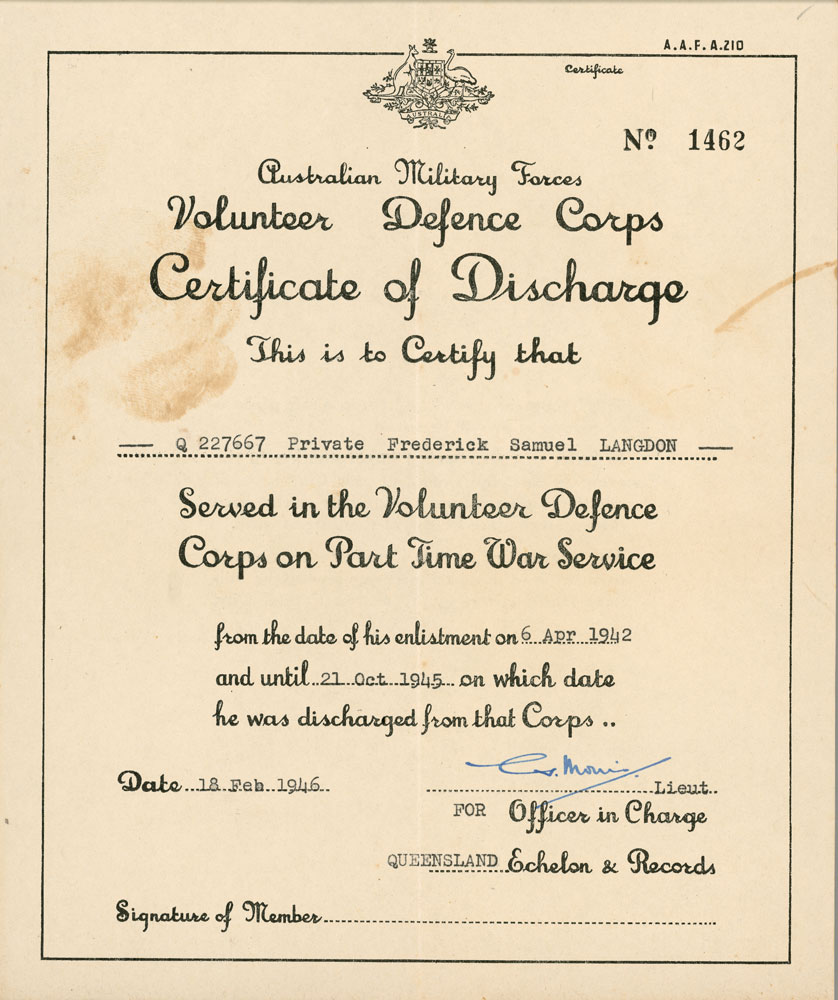 A.A.F. A.210
Certificate
AUSTRALIA
Nº 1462
Australian Military Forces
Volunteer Defence Corps
Certificate of Discharge
This is to Certify that
— Q 227667 Private Frederick Samuel LANGDON —
Served in the Volunteer Defence
Corps on Part Time War Service
from the date of his enlistment on 6 Apr 1942
and until 21 Oct 1945 on which date
he was discharged from that Corps ..
Date 18 Feb 1946
Lieut
FOR Officer in Charge
QUEENSLAND Echelon & Records
Signature of Member